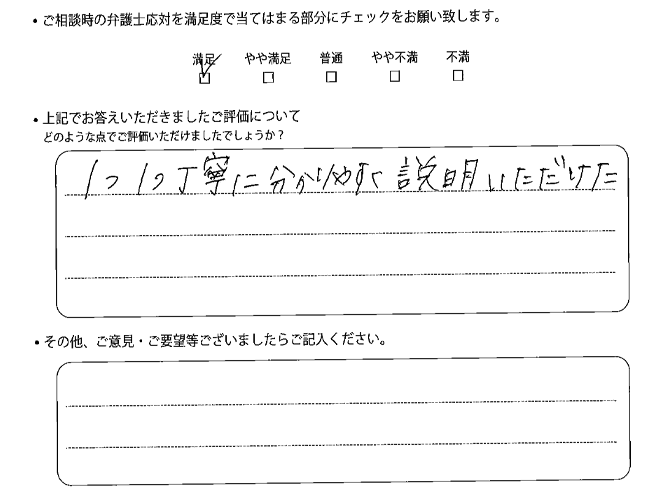 ・ご相談時の弁護士応対を満足度で当てはまる部分にチェックをお願い致します。
満足 やや満足 普通 やや不満 不満
・上記でお答えいただきましたご評価について
どのような点でご評価いただけましたでしょうか?
1つ1つ丁寧に分かりやすく説明いただけた
・その他、ご意見・ご要望等ございましたらご記入ください。